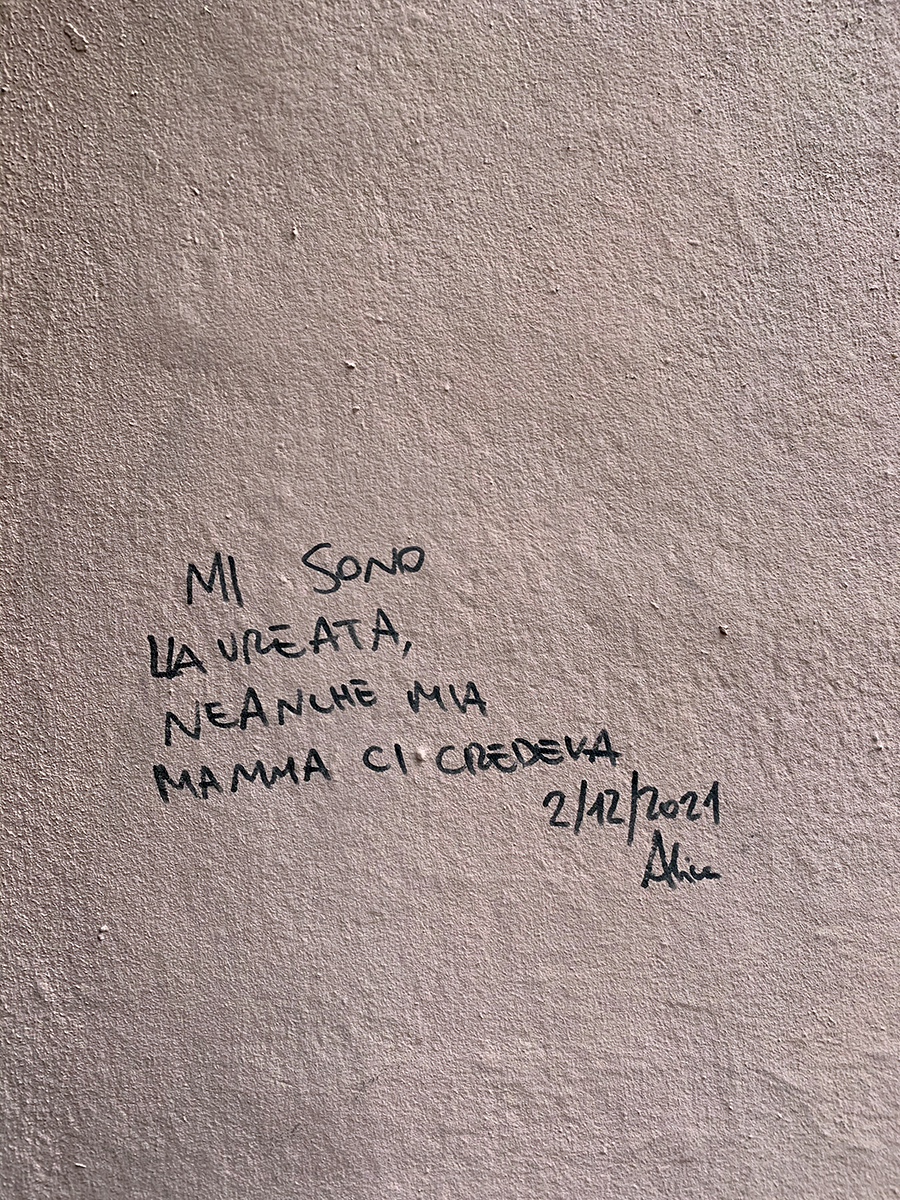 MI SONO
LAUREATA,
NEANCHE MIA
MAMMA CI CREDEVA
2/12/2021
Alice